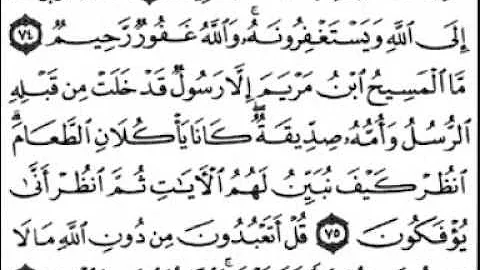 إِلَى ٱللَّهِ وَيَسْتَغْفِرُونَهُۥۚ وَٱللَّهُ غَفُورٌ رَّحِيمٌ ٧٤
مَّا ٱلْمَسِيحُ ٱبْنُ مَرْيَمَ إِلَّا رَسُولٌ قَدْ خَلَتْ مِن قَبْلِهِ
ٱلرُّسُلُ وَأُمُّهُۥ صِدِّيقَةٌۖ كَانَا يَأْكُلَانِ ٱلطَّعَامَۗ
ٱنظُرْ كَيْفَ نُبَيِّنُ لَهُمُ ٱلْآيَاتِ ثُمَّ ٱنظُرْ أَنَّىٰ
يُؤْفَكُونَ ٧٥ قُلْ أَتَعْبُدُونَ مِن دُونِ ٱللَّهِ مَا لَا